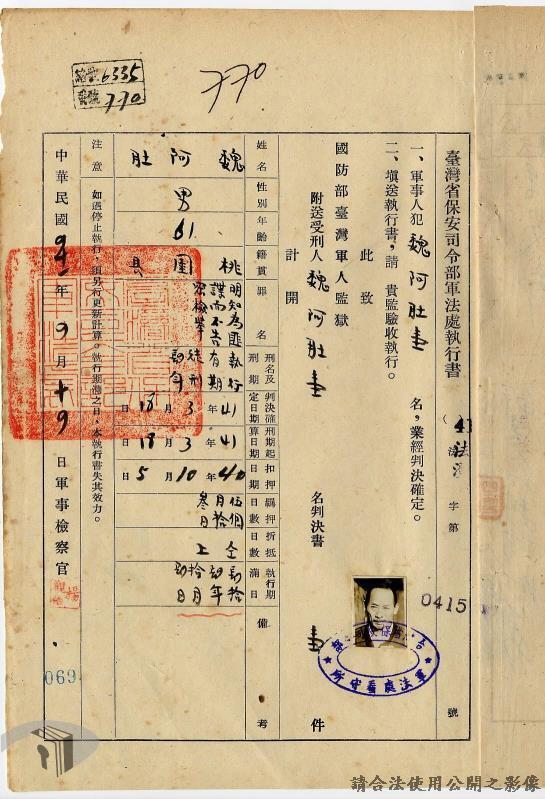 6335
770
770
臺灣省保安司令部軍法處執行書
字第
0415
號
一、軍事人犯 魏阿肚 壹 名,業經判決確定。
二、填送執行書,請 貴監驗收執行。
此致
國防部臺灣軍人監獄
附送受刑人 魏阿肚 壹 名判決書 壹 件
計開
姓名 性別 年齡 籍貫 罪名 刑名及刑期 判決確定日期 刑期起算日期 扣押日期 羈押日數 折抵日數 執行期滿日 備考
魏阿肚
男
61
桃園縣
明知為匪諜而不告檢舉
執行有期徒刑
41年3月18日
41年3月18日
40年10月5日
伍個月拾叁日
仝上
注意 如遇停止執行,須另行更新計算。執行期滿之日,本執行書失其效力。
中華民國 年 9 月 十9 日軍事檢察官
軍法處看守所
069
請合法使用公開之影像